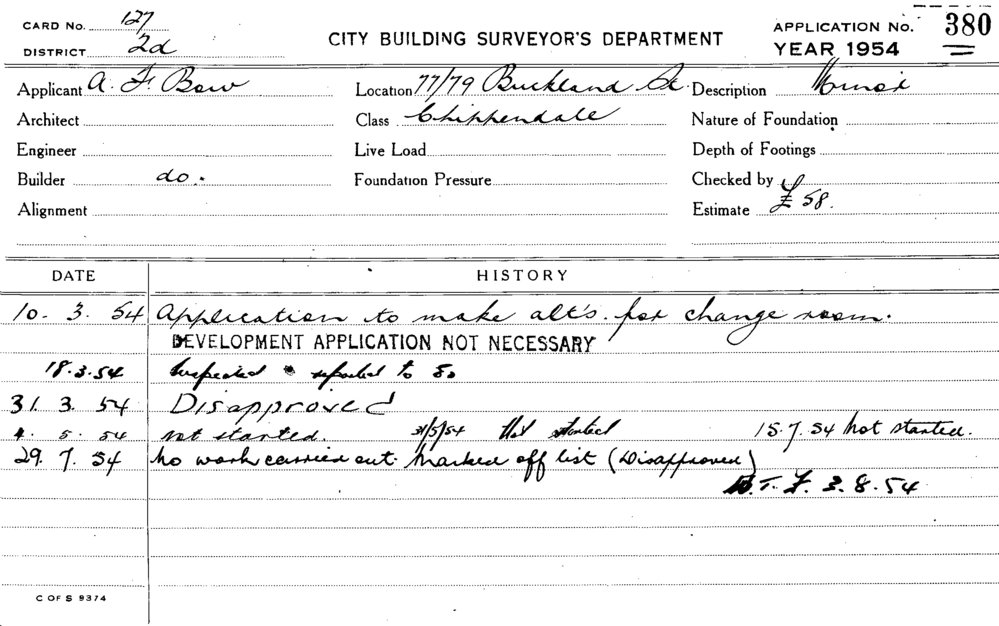 CARD No. 127
DISTRICT 2d
CITY BUILDING SURVEYOR'S DEPARTMENT
APPLICATION No. 380
YEAR 1954
Applicant A. F. Bow Location 77/79 Buckland St. Description Minor
Architect Class Chippendale Nature of Foundation
Engineer Live Load Depth of Footings
Builder do. Foundation Pressure Checked by
Alignment Estimate £ 58.
DATE HISTORY
10. 3. 54 Application to make alt's. for change room.
DEVELOPMENT APPLICATION NOT NECESSARY
18.3.54 Inspected & reported to
31. 3. 54 Disapproved
4. 5. 54 not started. 31/5/54 Not started 15.7.54 Not started.
29. 7. 54 No work carried out. Marked off list (Disapproved)
3. 8. 54
C OF S 9374